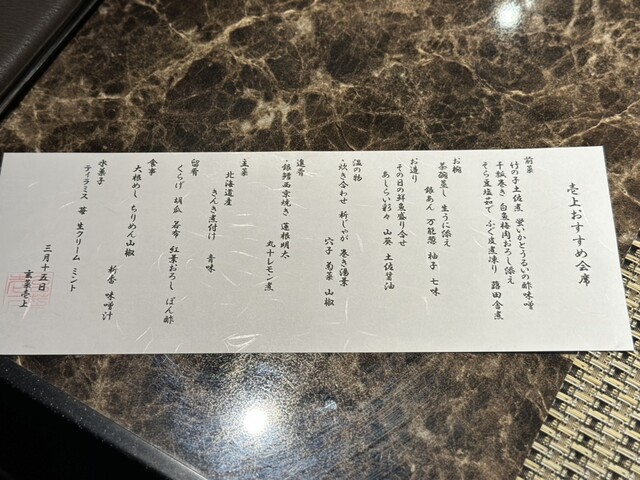 壱上おすすめ会席
前菜
竹の子土佐煮 蛍いかとうるいの酢味噌
干瓢巻き 白魚梅肉おろし添え
そら豆塩茹で ふぐ皮煮凍り 蕗田舎煮
お椀
茶碗蒸し 生うに添え
銀あん 万能葱 柚子 七味
お造り
その日の鮮魚盛り合せ
あしらい彩々 山葵 土佐醤油
温の物
・炊き合わせ 新じゃが 巻き湯葉
穴子 菊菜 山椒
進肴
・銀鱈西京焼き 蓮根明太
丸十レモン煮
主菜
北海道産
きんき煮付け 青味
留肴
くらげ 胡瓜 若布 紅葉おろし ぽん酢
食事
大根めし ちりめん山椒
新香 味噌汁
水菓子
ティラミス 苺 生クリーム ミント
三月十五日
玄菜壱上